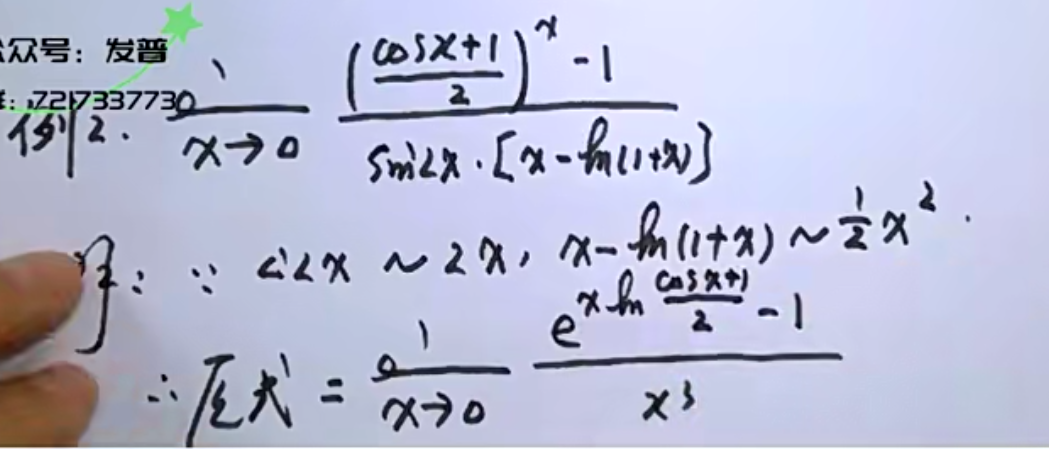 众号：发普
：721733773
例2. lim x→0 ((cosx+1)/2)^x - 1 / sin2x·[x-ln(1+x)]
解：∵ sin2x ~ 2x, x-ln(1+x) ~ 1/2 x^2.
∴ 原式 = lim x→0 e^(x ln (cosx+1)/2) - 1 / x^3